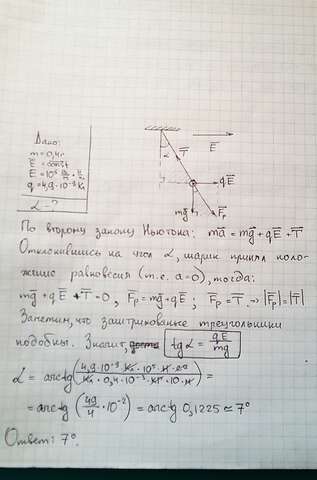 Дано:
m = 0,4г
E⃗ = const
E = 10⁵
q = 4,9·10⁻⁹ Кл
α - ?
α
T⃗
E⃗
qE⃗
mg⃗
F⃗р
По второму закону Ньютона: ma⃗ = mg⃗ + qE⃗ + T⃗
Отклонившись на угол α, шарик принял поло-
жение равновесия (т.е. a=0), тогда:
mg⃗ + qE⃗ + T⃗ = 0, F⃗р = mg⃗ + qE⃗, F⃗р = T⃗ → |F⃗р| = |T⃗|
Заметим, что заштрихованные треугольники
подобны. Значит, tg α = qE/mg
α = arctg (4,9·10⁻⁹ · Кл · 10⁵ · Н · кг / Кл · 0,4·10⁻³ · кг · 10 · Н) =
= arctg (49/4 · 10⁻²) = arctg 0,1225 ≃ 7°
Ответ: 7°.